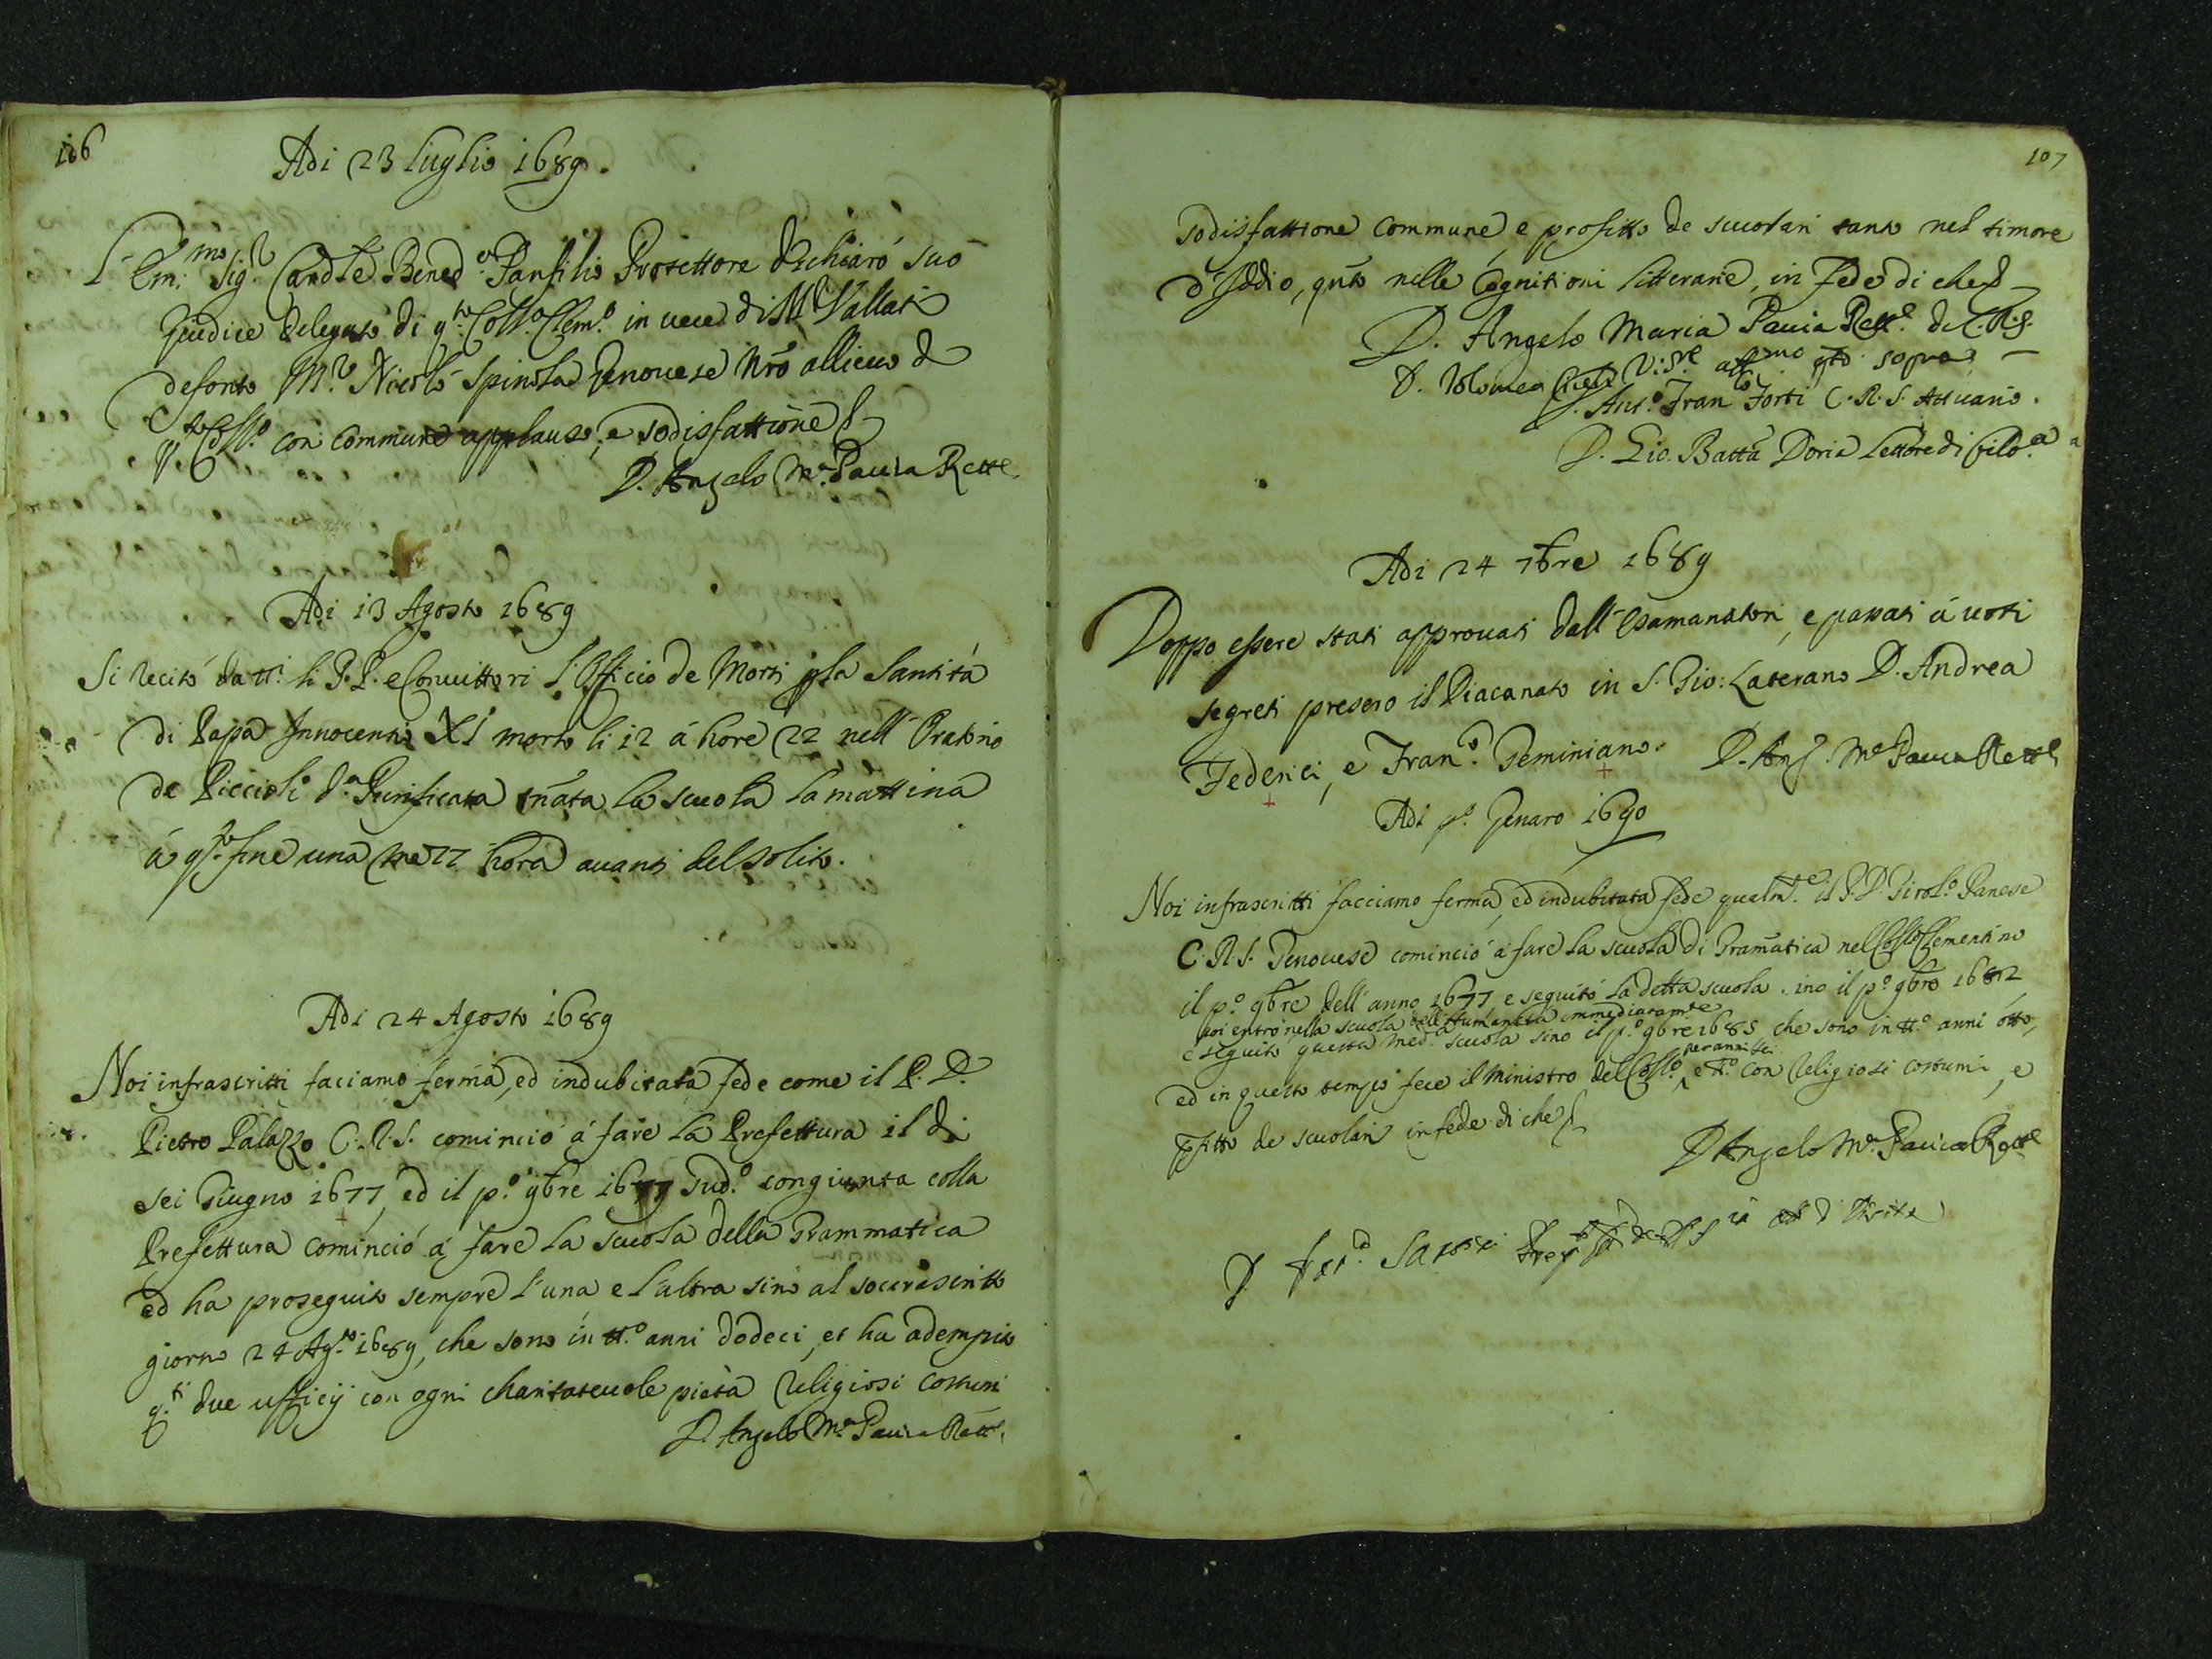 106
Adi 23 luglio 1689.
L'Em.mo Sig.r Cardle Bened.o Panfilio Protettore dichiarò suo
Giudice delegato di q.to Coll.o Clem.o in vece di M.r Vallati
defonto M.r Nicolò Spinola Genovese Nrõ allievo d
q.to Coll.o con commune applauso, e sodisfattione
D. Angelo M.a Pavia Rett.e
Adi 13 Agosto 1689
Si recitò da tt.i li P.P. e Convittori l'Officio de Morti p la Santità
di Papa Innocenzo XI morto li 12 à hore 22 nell'Oratorio
de Piccioli d.a Purificata la scuola la mattina
à q.to fine una mezz hora avanti del solito.
Adi 24 Agosto 1689
Noi infrascritti faciamo ferma, ed indubitata fede come il P. D.
Pietro Palazzo C.R.S. cominciò à fare la Prefettura il di
sei Giugno 1677, ed il p.o 9bre 1677 sud.o congiunta colla
Prefettura cominciò à fare la scuola della Grammatica
ed ha proseguito sempre l'una e l'altra sino al socrascritto
giorno 24 Ag.to 1689, che sono in tt.o anni dodeci, et ha adempito
q.ti due ufficij con ogni charitatevole pietà religiosi costumi
D. Angelo M.a Pavia Rett.e
107
sodisfattione commune, e profitto de scuolari tanto nel timore
d'Iddio, qũto nelle Cognitioni litterarie, in fede di che
D. Angelo Maria Pavia Rett.e de C.R.S.
D. Vic.re aff.mo qto sopra
D. Ant.o Fran.co Forti C.R.S. Attuario.
D. Gio. Batta Doria Lettore di filo.a
Adi 24 7bre 1689
Doppo essere stati approvati dall'Esamanatori, e passati à voti
segreti presero il Diacanato in S. Gio: Laterano D. Andrea
Federici, e Fran.o Geminiano. D. Ang. M.a Pavia Rett.e
Adi p.o Genaro 1690
Noi infrascritti facciamo ferma, ed indubitata fede qualm.te il P. D. Girol.o Panese
C.R.S. Genovese cominciò à fare la scuola di Gramatica nel Coll.o Clementino
il p.o 9bre dell'anno 1677 e seguitò la detta scuola sino il p.o 9bre 1682
poi entrò nella scuola dell'Humanità immediatam.te
e seguitò questa med.a scuola sino il p.o 9bre 1685 che sono in tt.o anni otto,
ed in questo tempo fece il Ministro del Coll.o per anni sei e tt.o con religiosi costumi, e
pfitto de scuolari in fede di che
D. Angelo M.a Pavia Rett.e
D.